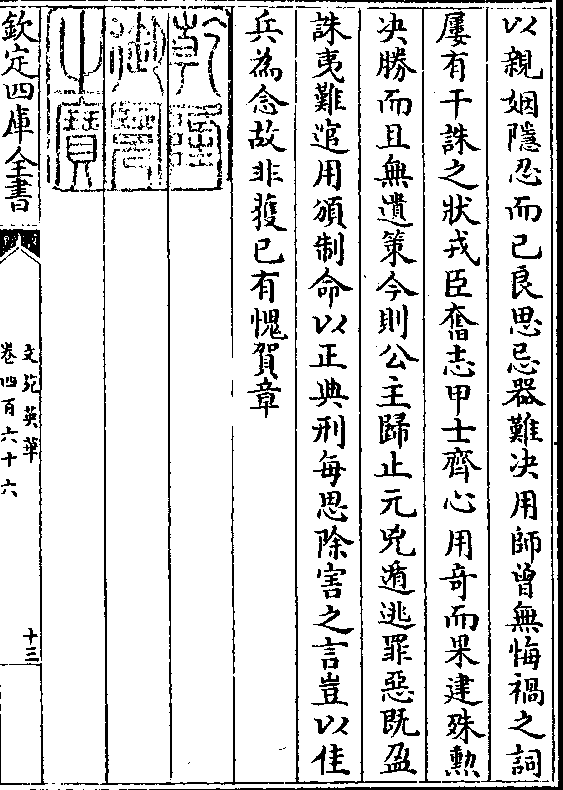 以親姻隱忍而已良思忌器難决用師曾無悔禍之詞
屢有干誅之狀戎臣奮志甲士齊心用奇而果建殊勲
决勝而且無遺策今則公主歸止元兇遁逃罪惡既盈
誅夷難逭用頒制命以正典刑每思除害之言豈以佳
兵為念故非獲已有愧賀章
乾隆
御覽
之寶
欽定四庫全書
文苑英華
卷四百六十六
十三